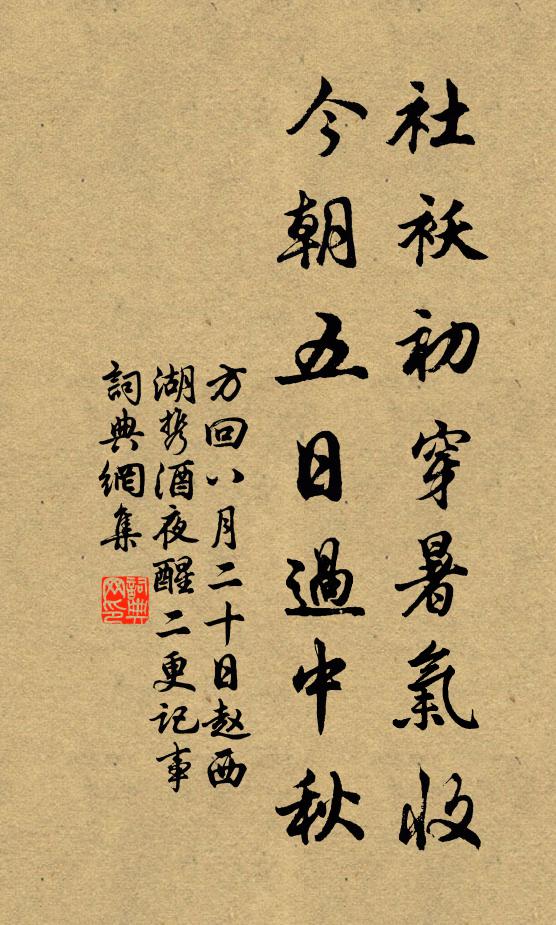 社袄初穿暑氣收
今朝五日過中秋
方回八月二十日赵西
湖携酒夜醒二更记事
詞典網集
詞典
网印